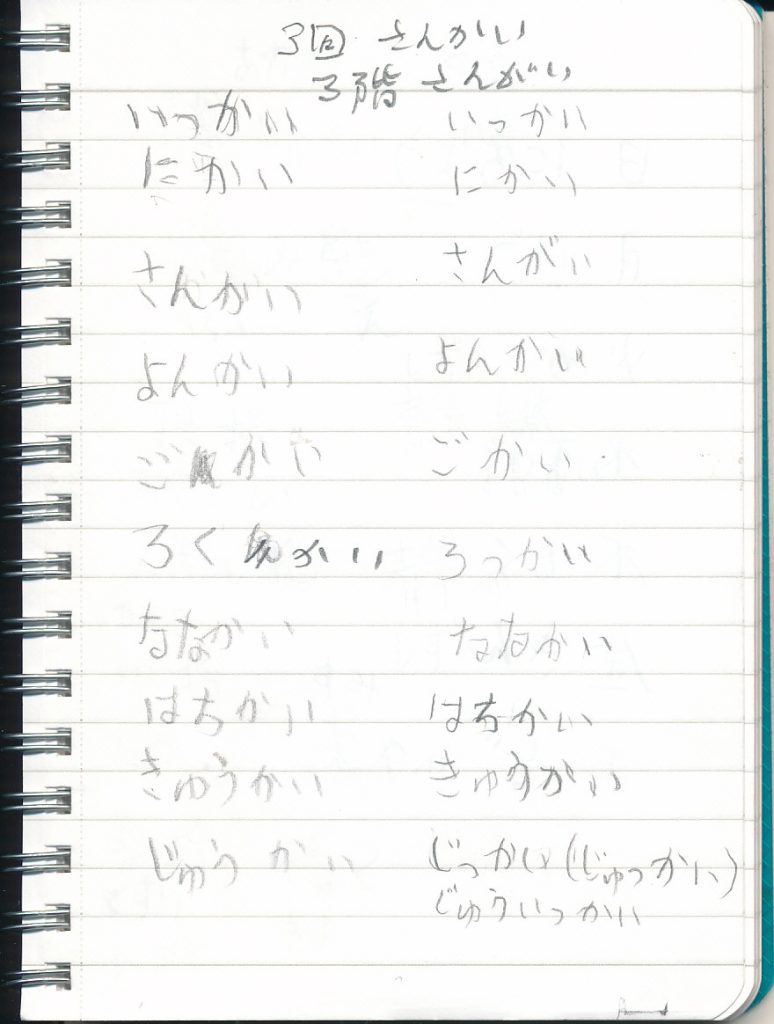 3回 さんかい
3階 さんがい
いっかい いっかい
にかい にかい
さんかい さんがい
よんかい よんかい
ご かい ごかい
ろく かい ろっかい
ななかい ななかい
はちかい はちかい
きゅうかい きゅうかい
じゅうかい じっかい(じゅっかい)
じゅういっかい